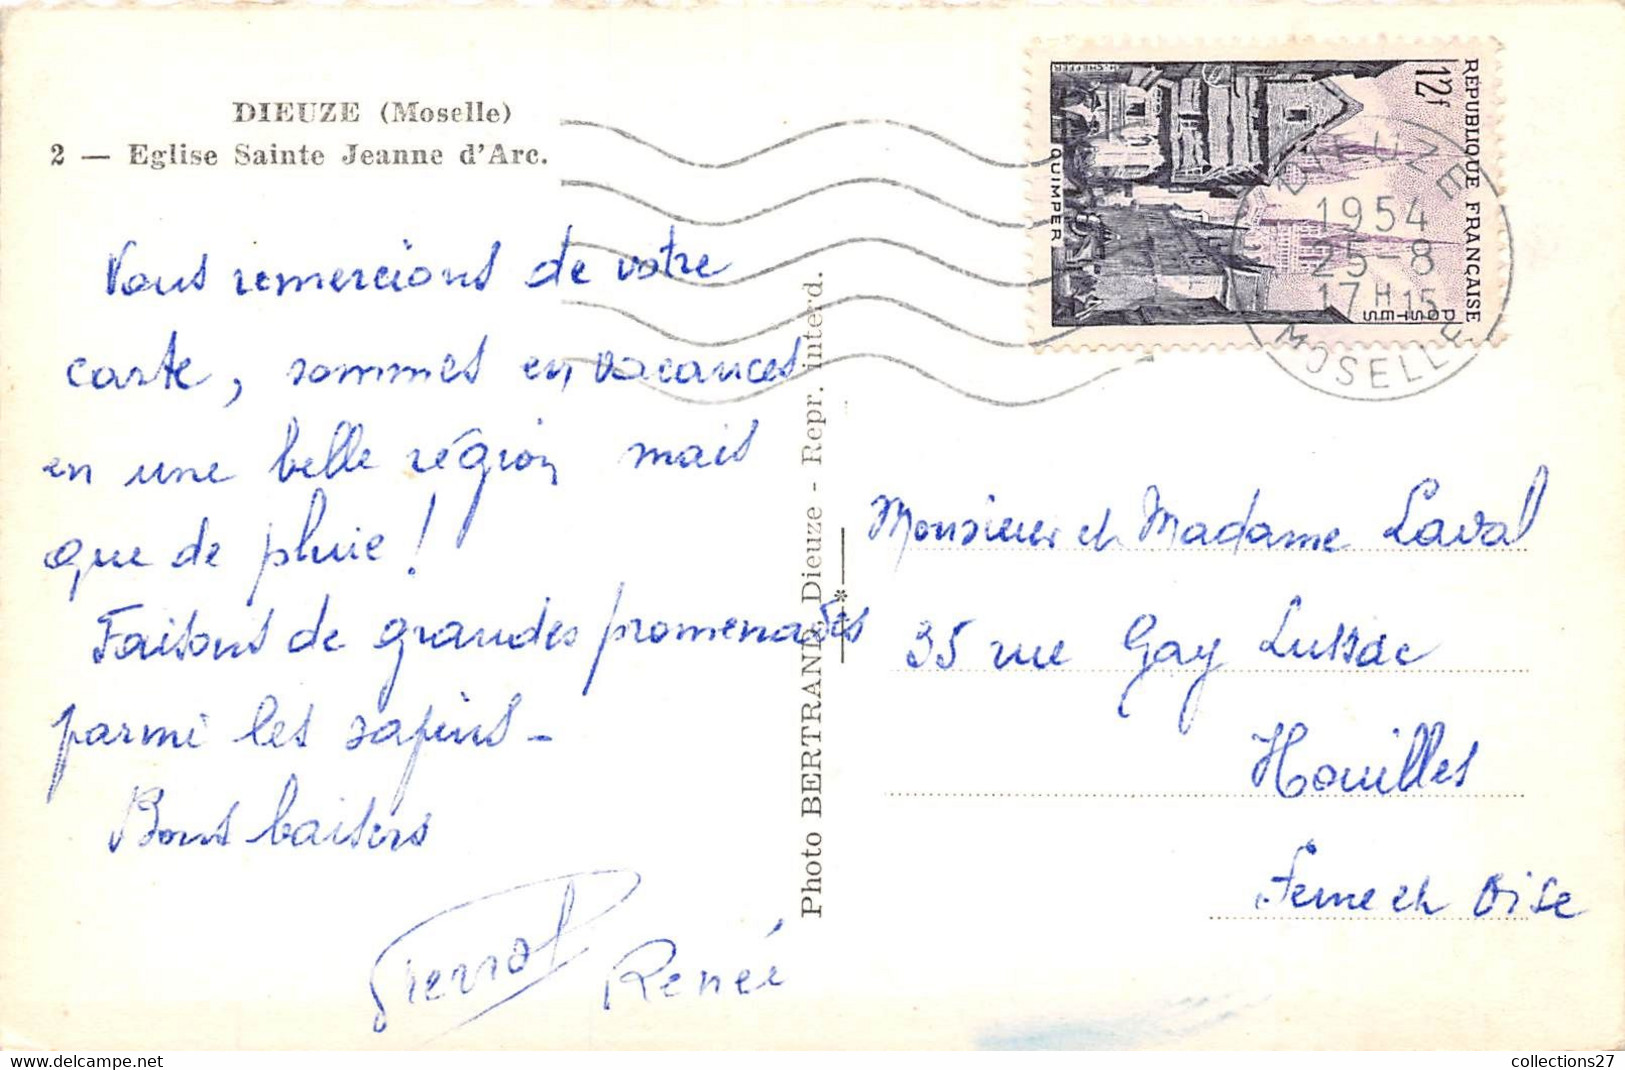 DIEUZE (Moselle)
2 — Eglise Sainte Jeanne d'Arc.
Vous remercions de votre
carte, sommes en vacances
en une belle région mais
que de pluie !
Faisons de grandes promenades
parmi les sapins -
Bons baisers
Pierrot
Renée
Photo BERTRAND, Dieuze - Repr. interd.
*
RÉPUBLIQUE FRANÇAISE
POSTES
12f
QUIMPER
H. CHEFFER
DIEUZE
1954
25-8
17H15
MOSELLE
Monsieur et Madame Laval
35 rue Gay Lussac
Houilles
Seine et Oise
collections27